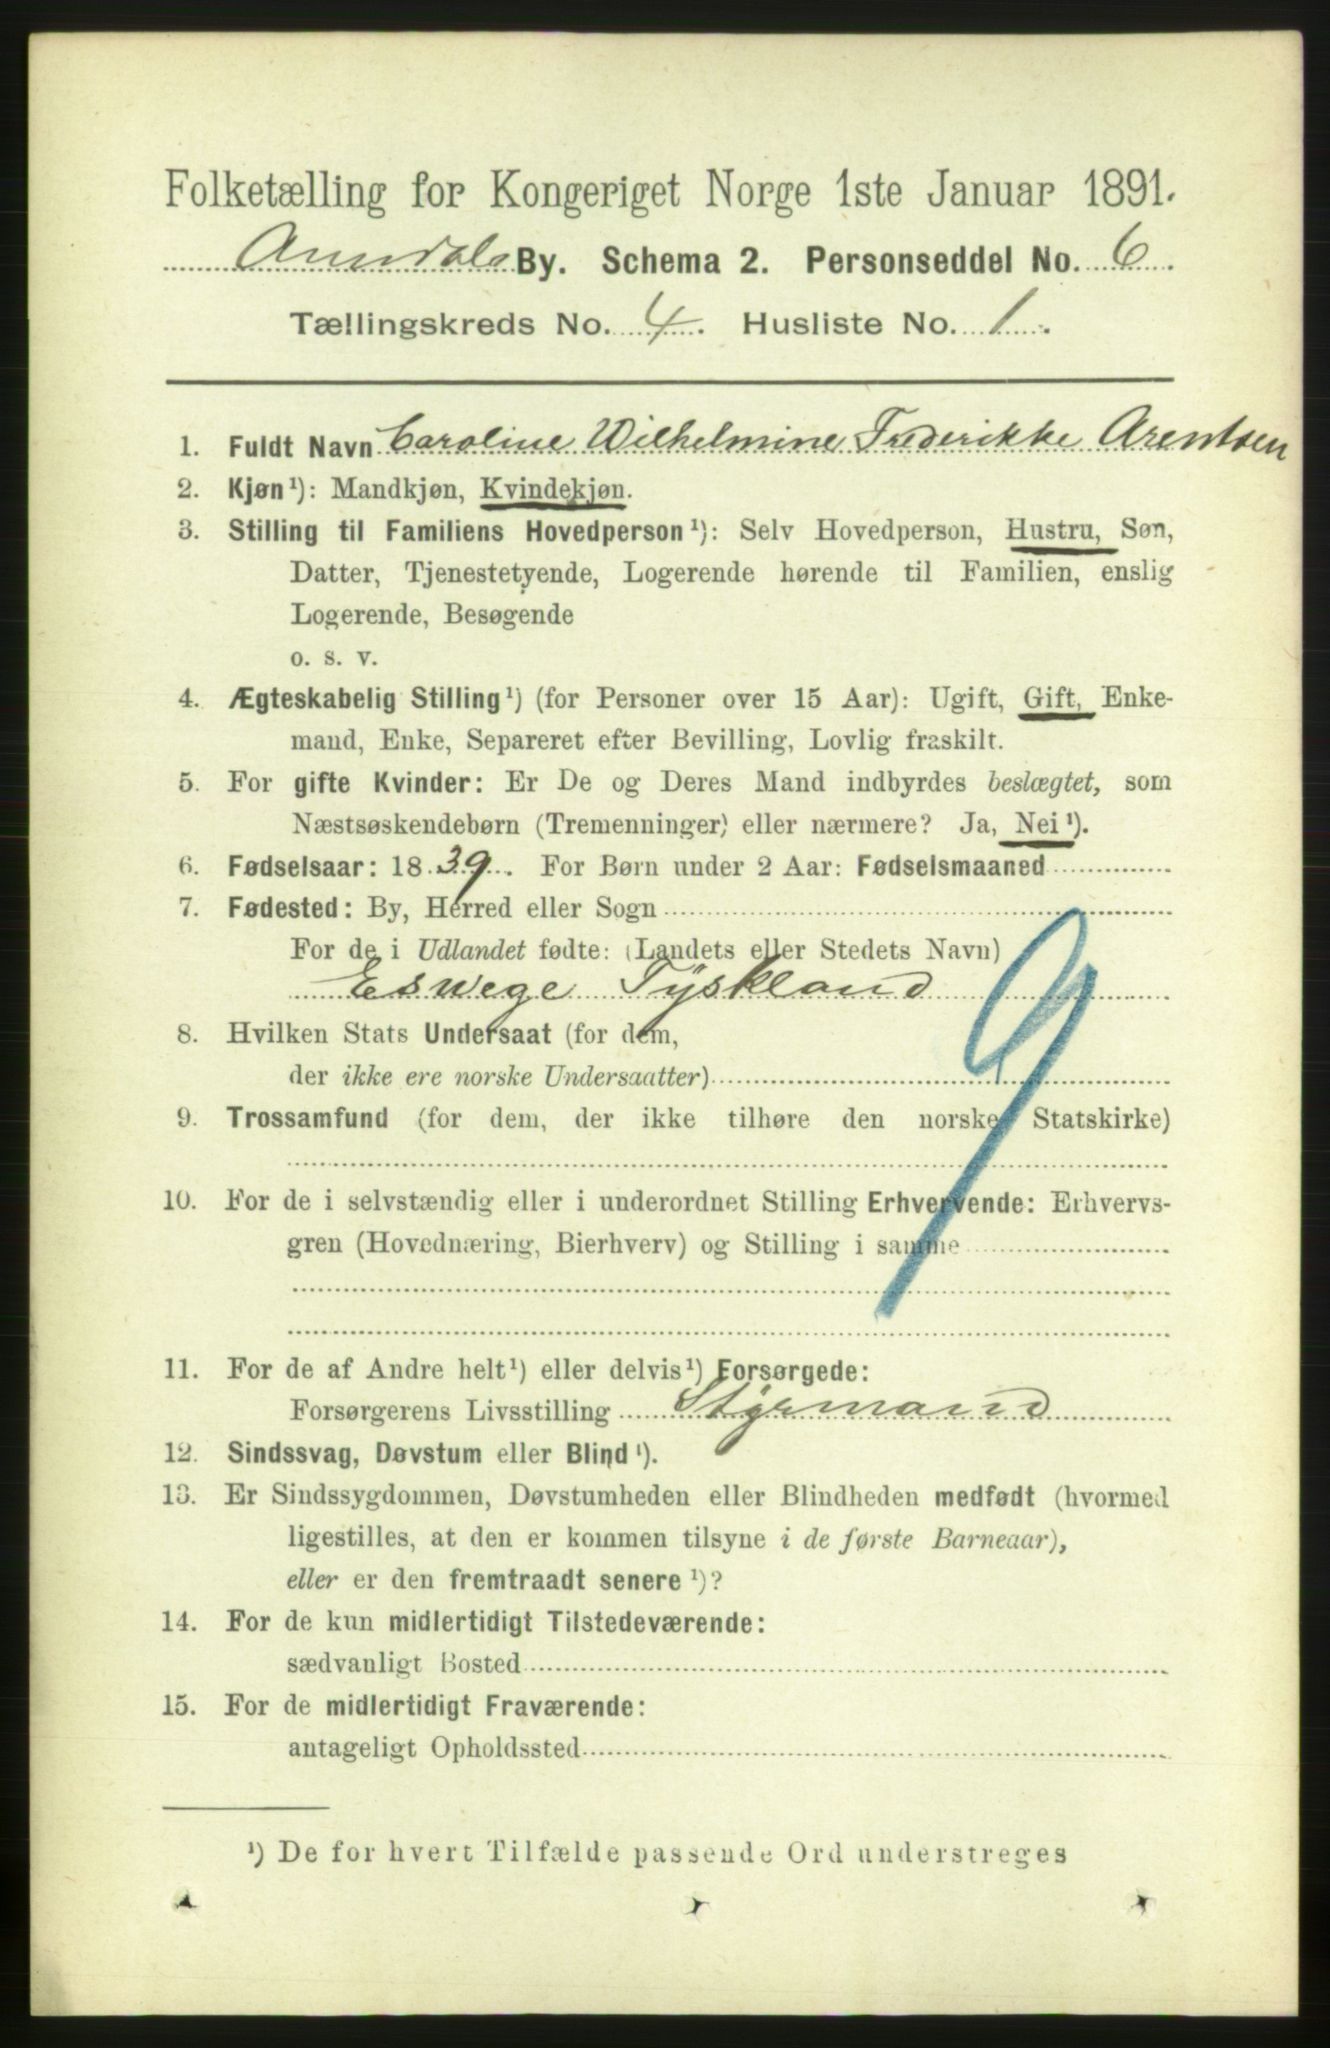 Folketælling for Kongeriget Norge 1ste Januar 1891.
Arendals By. Schema 2. Personseddel No. 6.
Tællingskreds No. 4. Husliste No. 1.
1. Fuldt Navn Caroline Wilhelmine Frederikke Arentsen
2. Kjøn¹): Mandkjøn, Kvindekjøn.
3. Stilling til Familiens Hovedperson¹): Selv Hovedperson, Hustru, Søn,
Datter, Tjenestetyende, Logerende hørende til Familien, enslig
Logerende, Besøgende
o. s. v.
4. Ægteskabelig Stilling¹) (for Personer over 15 Aar): Ugift, Gift, Enke-
mand, Enke, Separeret efter Bevilling, Lovlig fraskilt.
5. For gifte Kvinder: Er De og Deres Mand indbyrdes beslægtet, som
Næstsøskendebørn (Tremenninger) eller nærmere? Ja, Nei¹).
6. Fødselsaar: 1839. For Børn under 2 Aar: Fødselsmaaned
7. Fødested: By, Herred eller Sogn
For de i Udlandet fødte: (Landets eller Stedets Navn)
Eswege Tyskland
9
8. Hvilken Stats Undersaat (for dem,
der ikke ere norske Undersaatter)
9. Trossamfund (for dem, der ikke tilhøre den norske Statskirke)
10. For de i selvstændig eller i underordnet Stilling Erhvervende: Erhvervs-
gren (Hovednæring, Bierhverv) og Stilling i samme
11. For de af Andre helt¹) eller delvis¹) Forsørgede:
Forsørgerens Livsstilling Styrmand
12. Sindssvag, Døvstum eller Blind¹).
13. Er Sindssygdommen, Døvstumheden eller Blindheden medfødt (hvormed
ligestilles, at den er kommen tilsyne i de første Barneaar),
eller er den fremtraadt senere¹)?
14. For de kun midlertidigt Tilstedeværende:
sædvanligt Bosted
15. For de midlertidigt Fraværende:
antageligt Opholdssted
¹) De for hvert Tilfælde passende Ord understreges